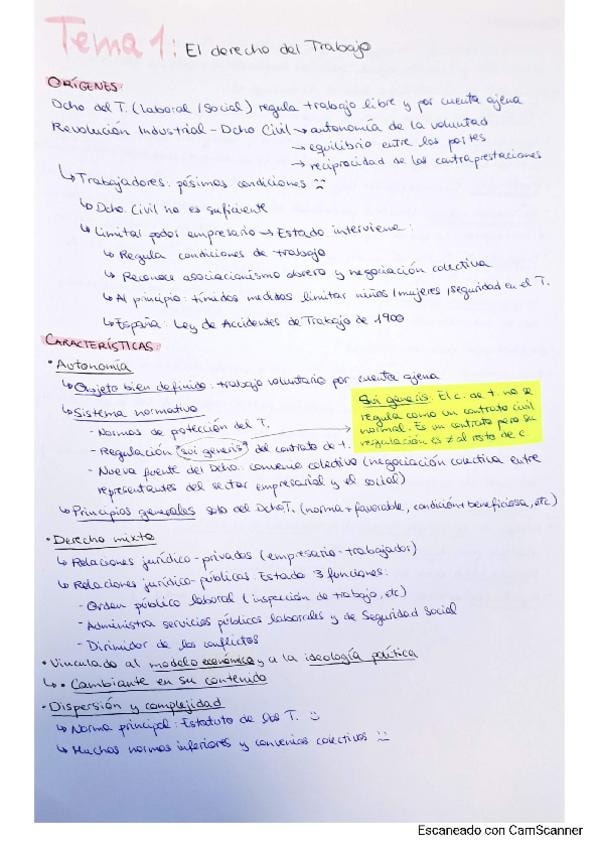 Tema 1: El derecho del Trabajo
ORÍGENES
Dcho del T. (laboral / social) regula trabajo libre y por cuenta ajena
Revolución Industrial - Dcho Civil → autonomía de la voluntad
→ equilibrio entre las partes
→ reciprocidad de las contraprestaciones
↳ Trabajadores: pésimas condiciones :(
↳ Dcho. Civil no es suficiente
↳ Limitar poder empresario → Estado interviene:
↳ Regula condiciones de trabajo
↳ Reconoce asociacionismo obrero y negociación colectiva
↳ Al principio: tímidas medidas limitar niños/mujeres, seguridad en el T.
↳ España: Ley de Accidentes de Trabajo de 1900
CARACTERÍSTICAS
• Autonomía
↳ Objeto bien definido: trabajo voluntario por cuenta ajena
↳ Sistema normativo
- Normas de potección del T.
- Regulación "sui generis" del contrato de t.
- Nueva fuente del Dcho: convenio colectivo (negociación colectiva entre
representantes del sector empresarial y el social)
Sui generis: El c. de t. no se
regula como un contrato civil
normal. Es un contrato pero su
regulación es ≠ al resto de c.
↳ Principios generales solo del Dcho T. (norma + favorable, condición + beneficiosa, etc)
• Derecho mixto
↳ Relaciones jurídico-privadas (empresario-trabajador)
↳ Relaciones jurídico-públicas: Estado 3 funciones:
- Orden público laboral (inspección de trabajo, etc)
- Administra servicios públicos laborales y de Seguridad Social
- Dirimidor de los conflictos
• Vinculado al modelo económico y a la ideología política
↳ • Cambiante en su contenido
• Dispersión y complejidad
↳ Norma principal: Estatuto de los T. :)
↳ Muchas normas inferiores y convenios colectivos :(
Escaneado con CamScanner